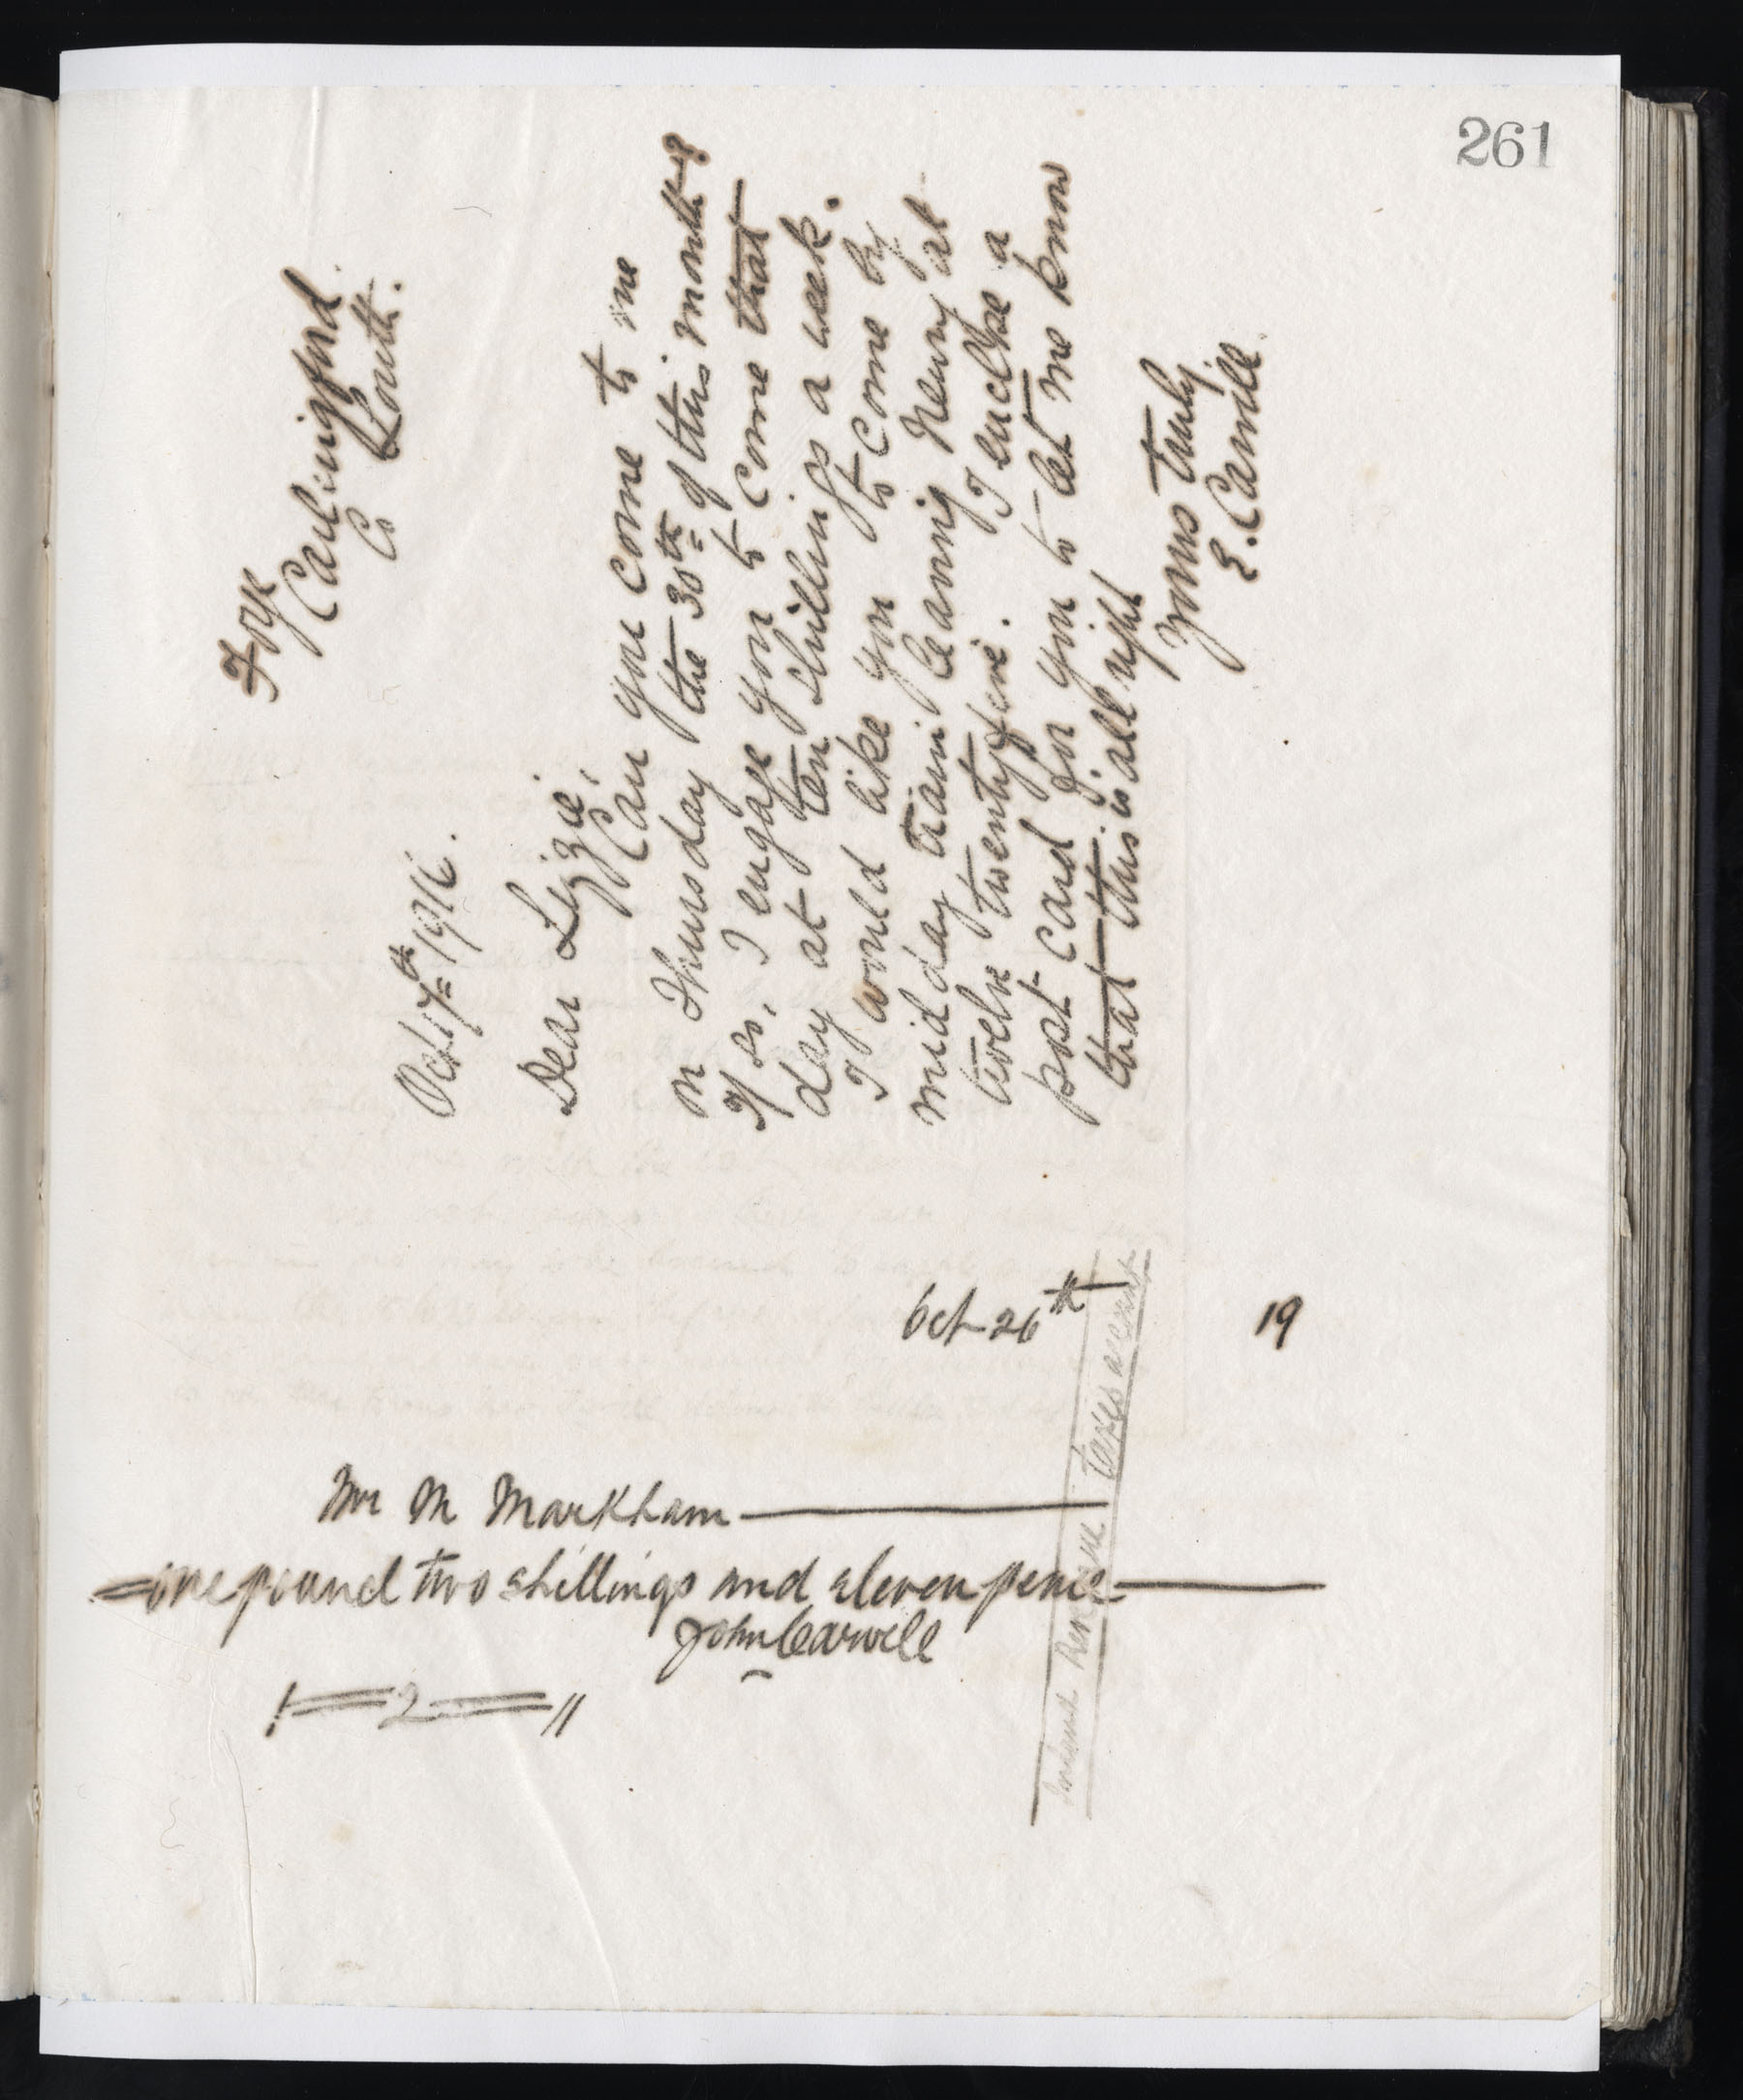 261
Foye
Carlingford
Co Louth.
Oct. 17th 1916.
Dear Lizzie,
Can you come to me
on Thursday the 30th of this month?
If so, I engage you to come that
day at ten shillings a week.
I would like you to come by
mid day train leaving Newry at
twelve twentyfive. I enclose a
post card for you to let me know
that this is all right
yours truly
E. Carvill
Oct 26th 19
Mr M Markham
one pound two shillings and eleven pence
John Carvill
1 = 2 = 11
Inland Revenue taxes account